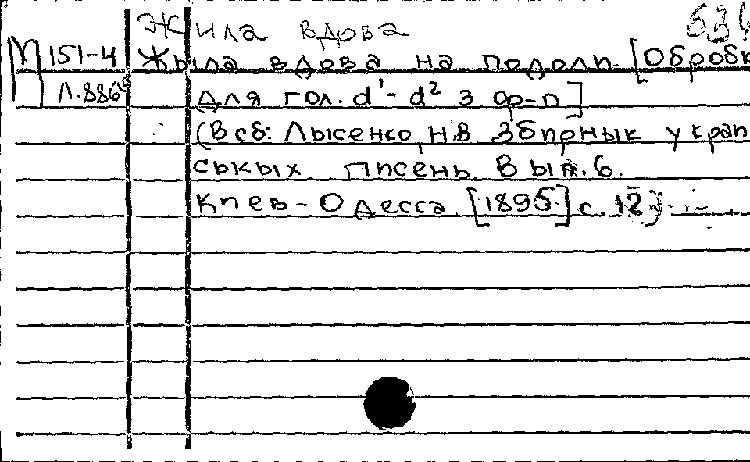 Жила вдова
М 151-4 Жыла вдова на подоли. [Обробк
Л.886 для гол. d¹-d² з ф-п]
(В сб: Лысенко, Н.В. Збирнык украи
ськых писень. Вып. 6.
Киев-Одесса. [1895.] с. 12)